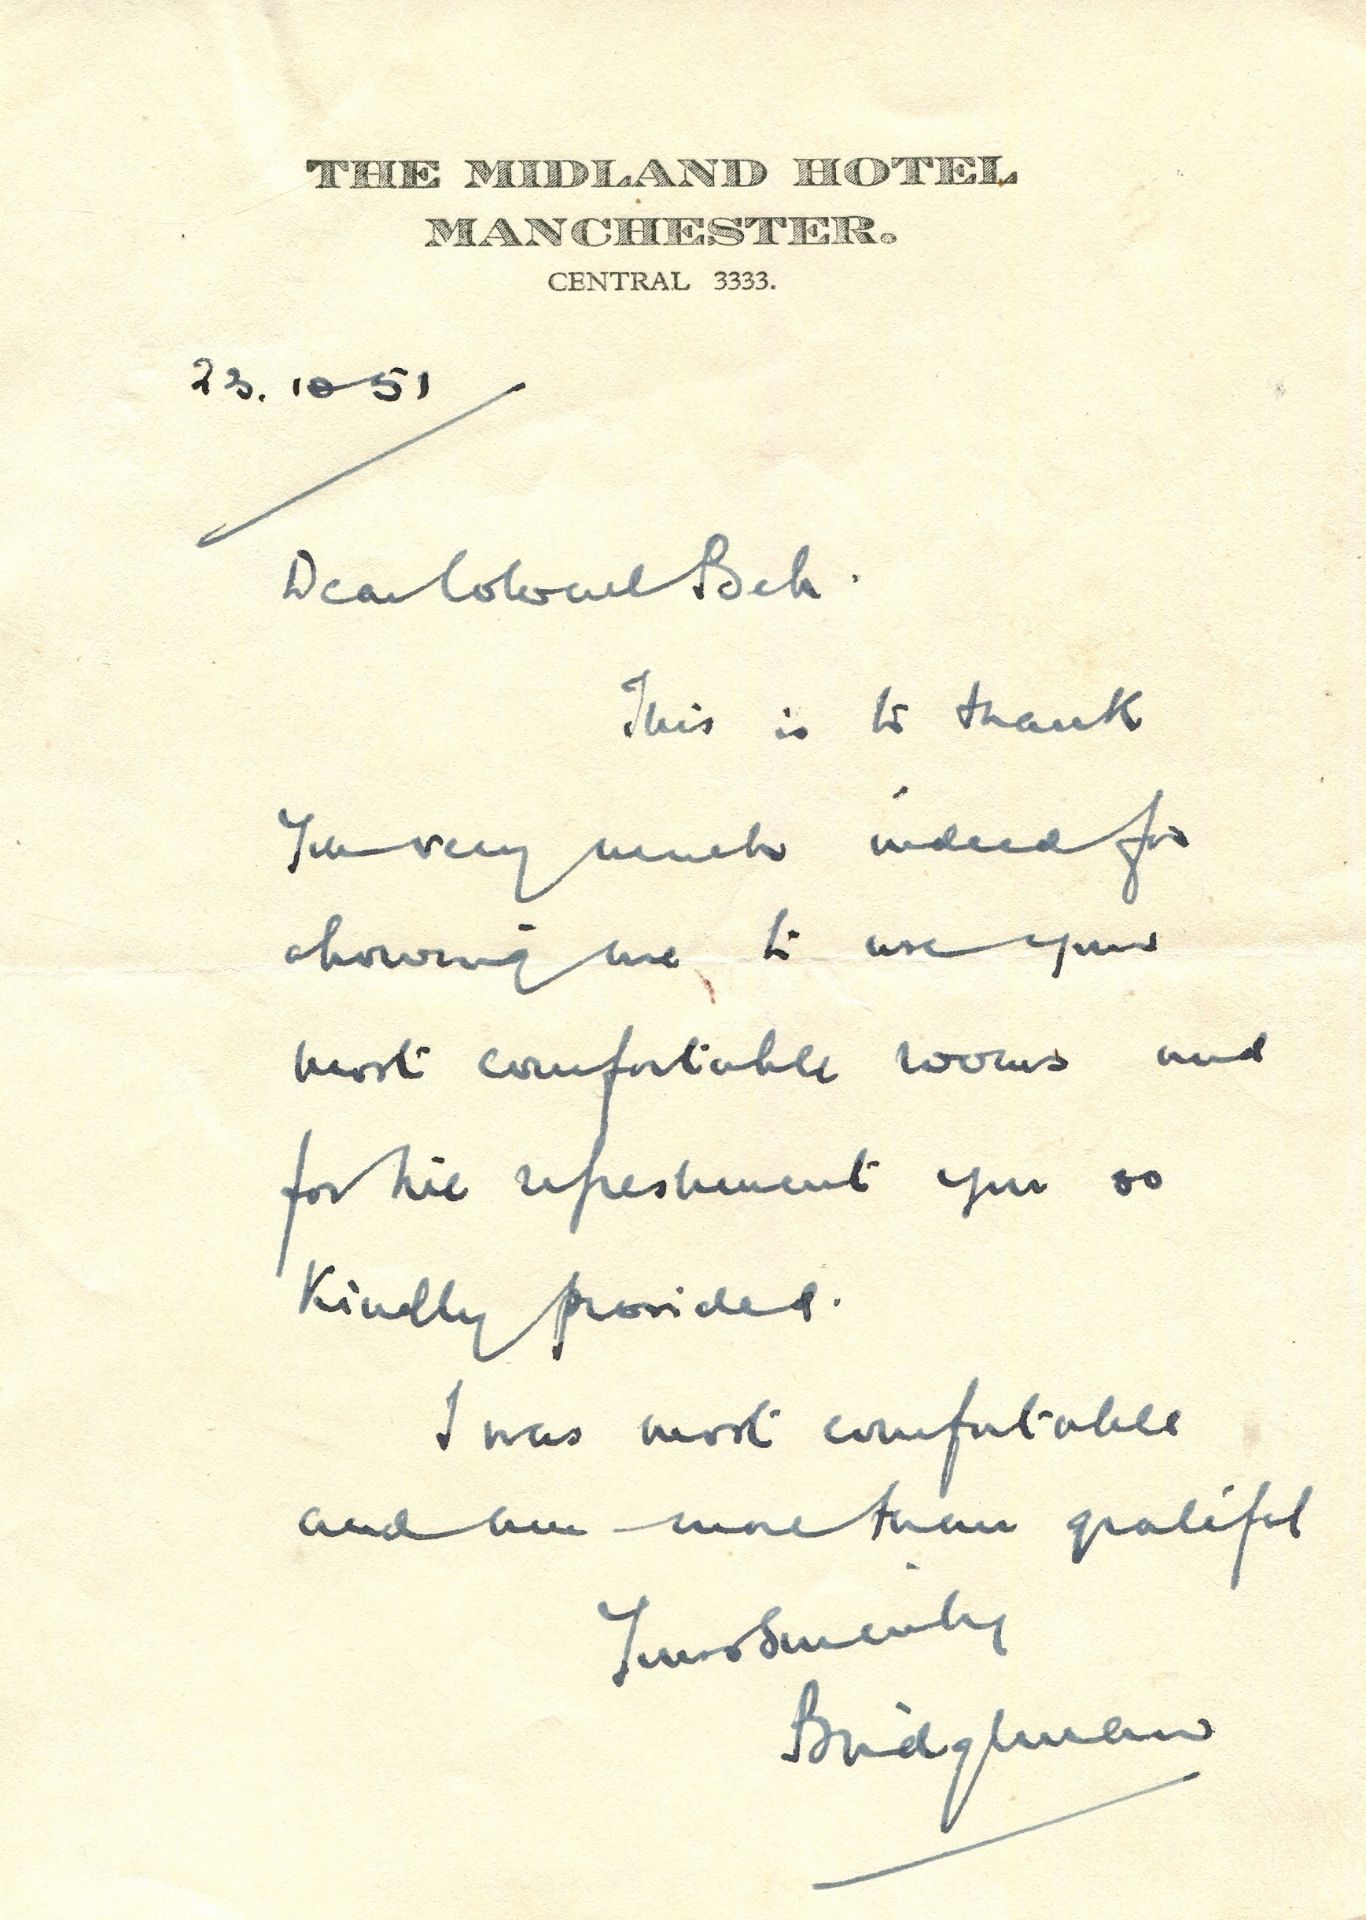 THE MIDLAND HOTEL
MANCHESTER.
CENTRAL 3333.
23.10 51
Dear Colonel
This is to thank
You very much indeed for
allowing me to use your
most comfortable rooms and
for the refreshment you so
kindly provided.
I was most comfortable
and am more than grateful
Yours Sincerely
Bridgeman